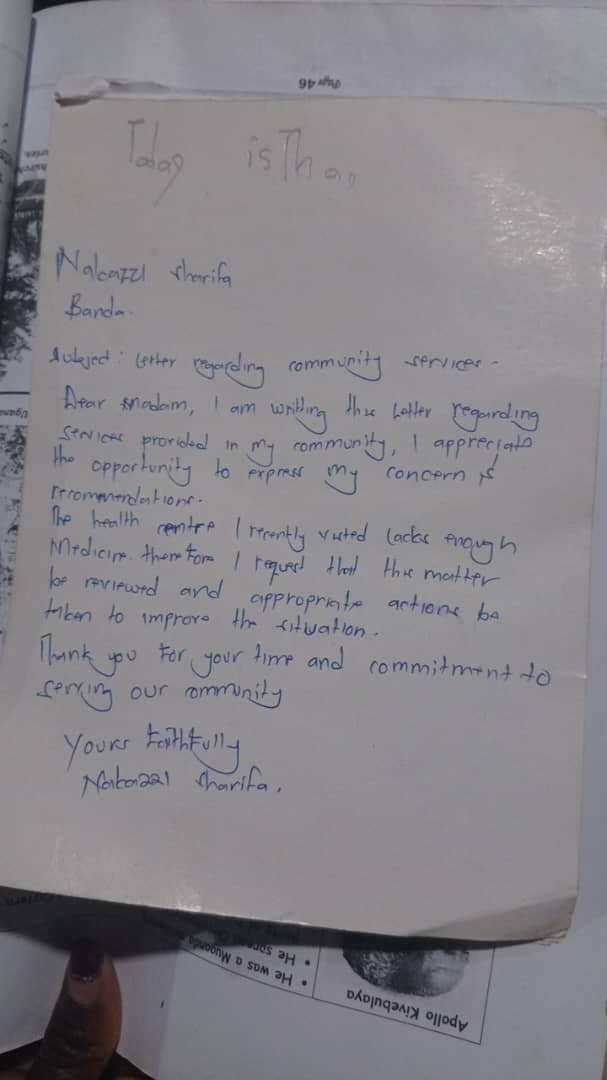 Page 46
Today isTha.
Nakazzi sharifa
Banda.
Subject: Letter regarding community services -
Dear madam, I am writting this Letter regarding
services provided in my community, I appreciate
the opportunity to express my concern &
recommendations.
The health centre I recently visted Lacks enough
Medicine. therefore I request that this matter
be reviewed and appropriate actions be
taken to improve the situation.
Thank you for your time and commitment to
serving our ommunity
Yours faithfully
Nakazzi sharifa.
Apollo Kivebulaya
• He was a Muganda
• He spre